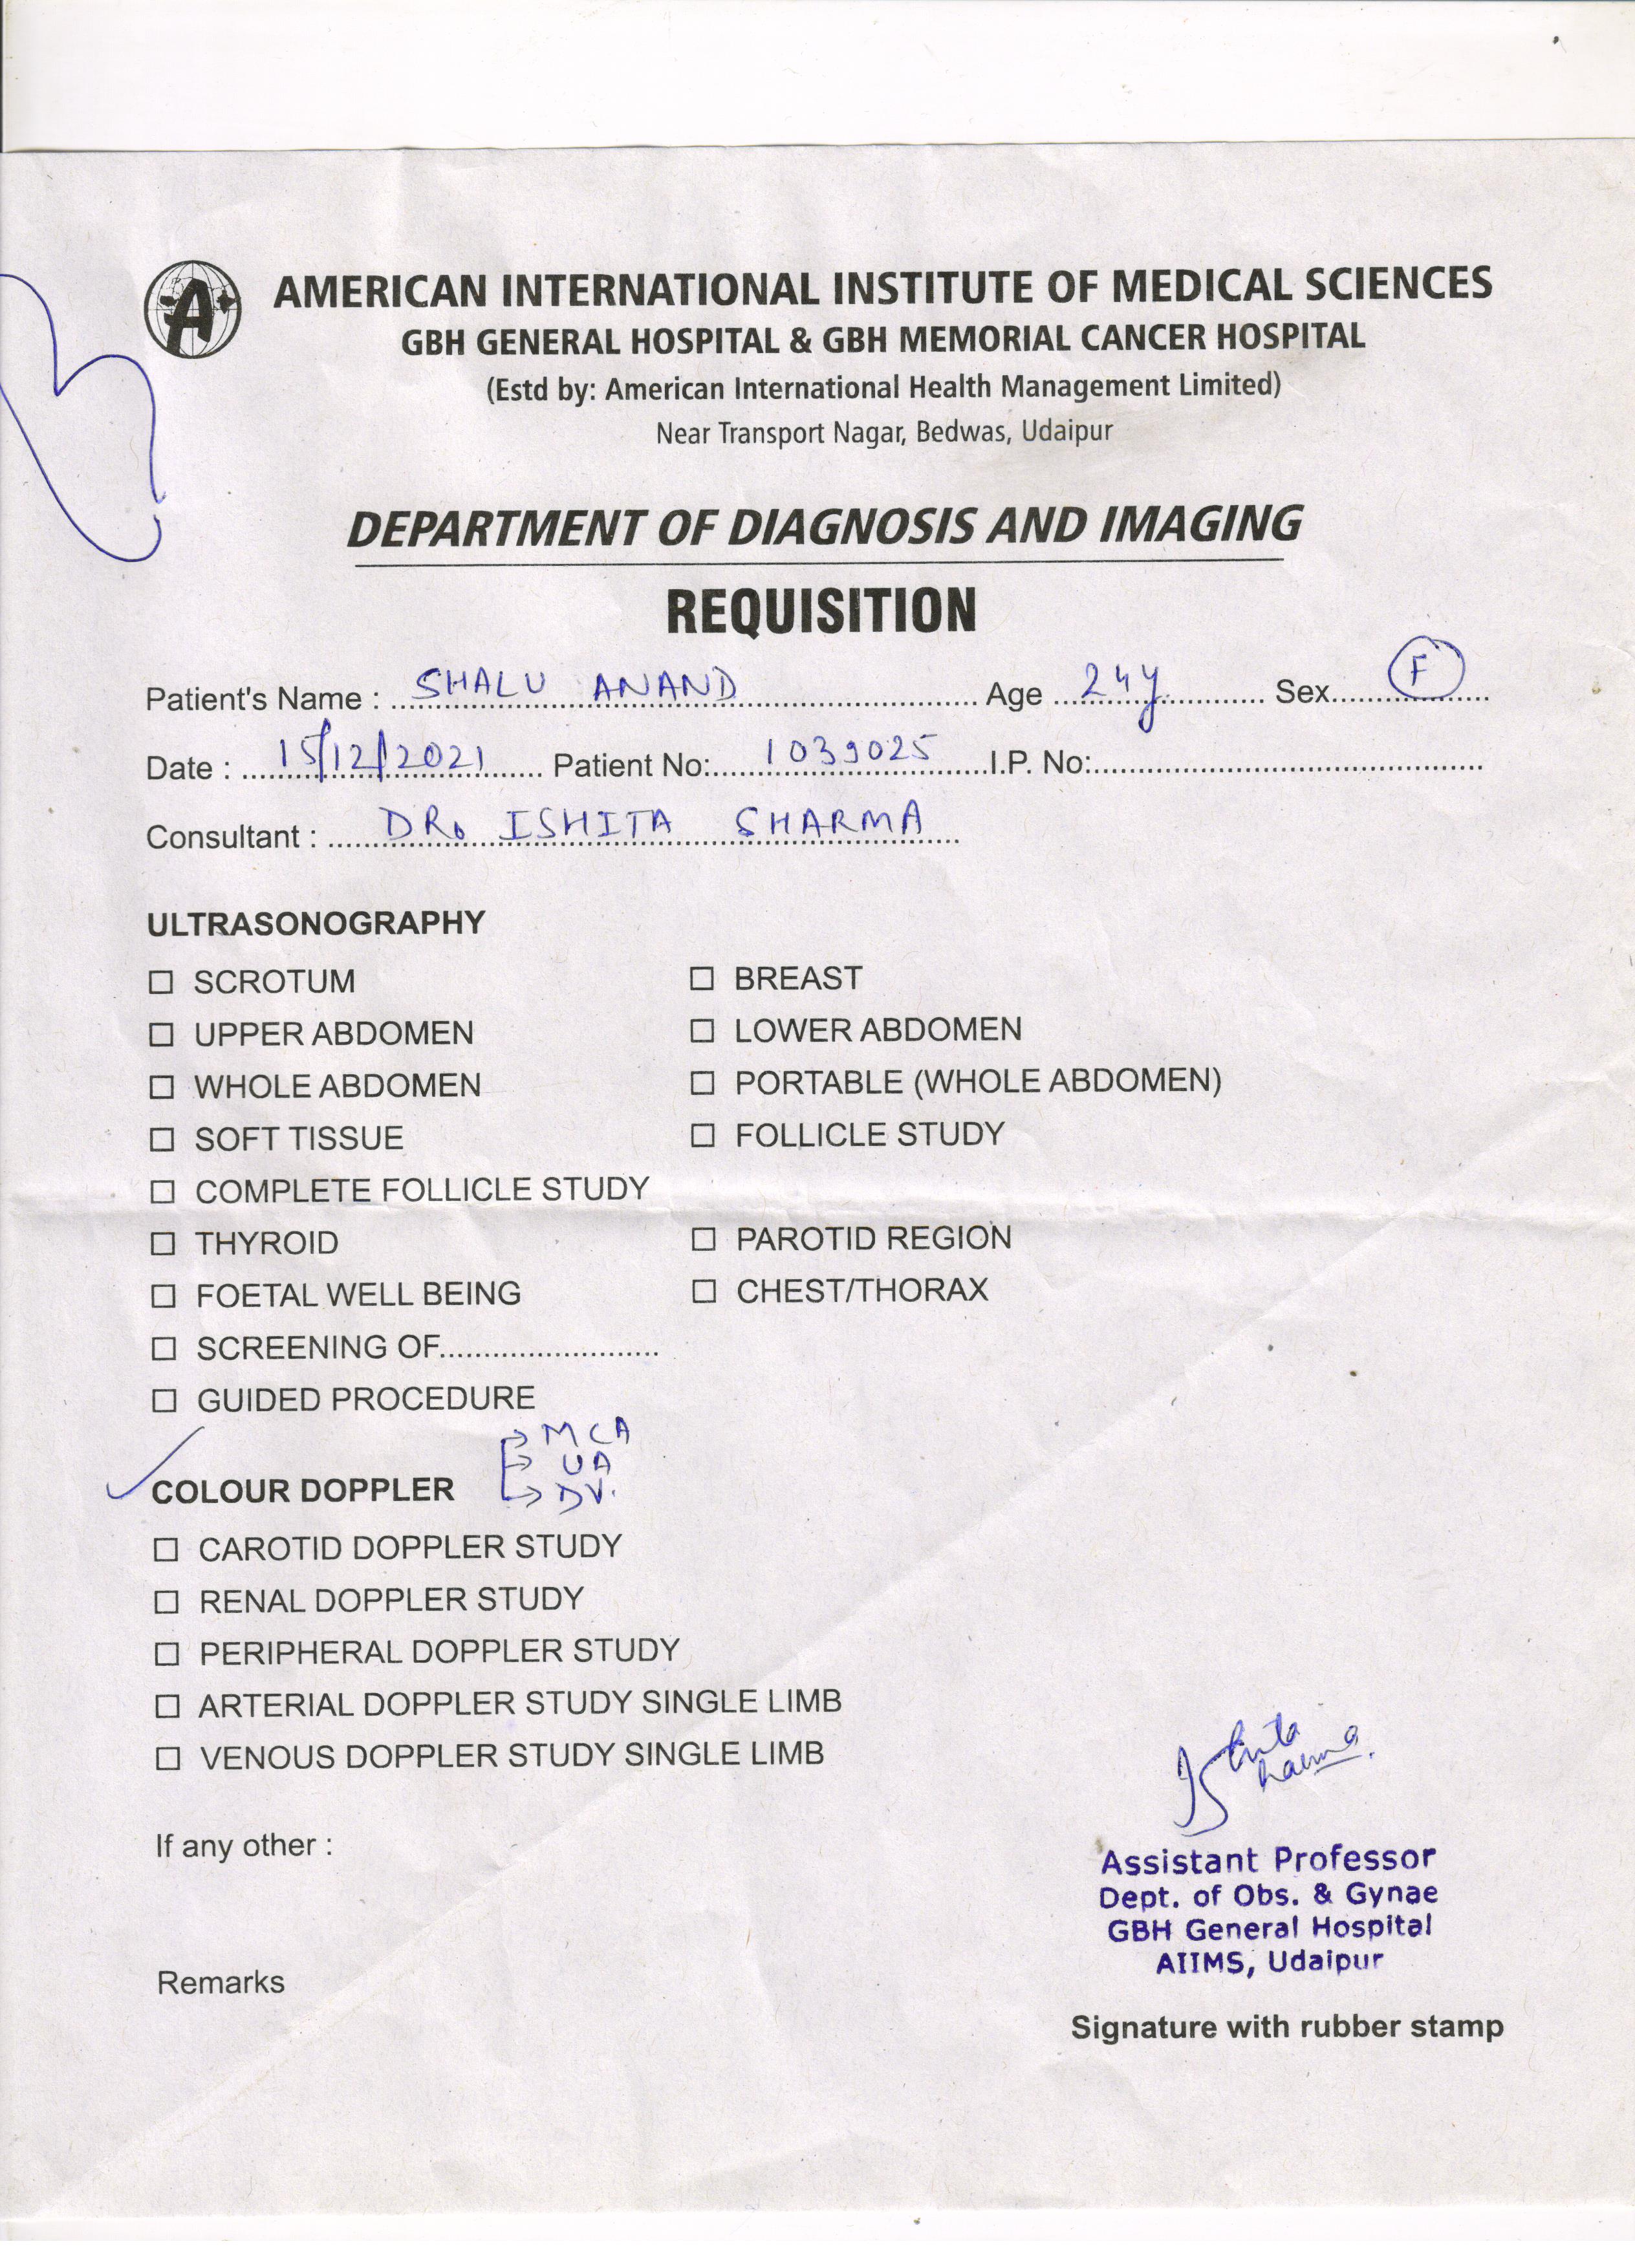 AMERICAN INTERNATIONAL INSTITUTE OF MEDICAL SCIENCES
GBH GENERAL HOSPITAL & GBH MEMORIAL CANCER HOSPITAL
(Estd by: American International Health Management Limited)
Near Transport Nagar, Bedwas, Udaipur
DEPARTMENT OF DIAGNOSIS AND IMAGING
REQUISITION
Patient's Name : SHALU ANAND Age 24y Sex F
Date : 15/12/2021 Patient No: 1039025 I.P. No:
Consultant : DR. ISHITA SHARMA
ULTRASONOGRAPHY
☐ SCROTUM ☐ BREAST
☐ UPPER ABDOMEN ☐ LOWER ABDOMEN
☐ WHOLE ABDOMEN ☐ PORTABLE (WHOLE ABDOMEN)
☐ SOFT TISSUE ☐ FOLLICLE STUDY
☐ COMPLETE FOLLICLE STUDY
☐ THYROID ☐ PAROTID REGION
☐ FOETAL WELL BEING ☐ CHEST/THORAX
☐ SCREENING OF........................
☐ GUIDED PROCEDURE
✓ COLOUR DOPPLER → MCA
→ UA
→ DV.
☐ CAROTID DOPPLER STUDY
☐ RENAL DOPPLER STUDY
☐ PERIPHERAL DOPPLER STUDY
☐ ARTERIAL DOPPLER STUDY SINGLE LIMB
☐ VENOUS DOPPLER STUDY SINGLE LIMB
If any other :
Ishita
Sharma.
Assistant Professor
Dept. of Obs. & Gynae
GBH General Hospital
AIIMS, Udaipur
Remarks
Signature with rubber stamp